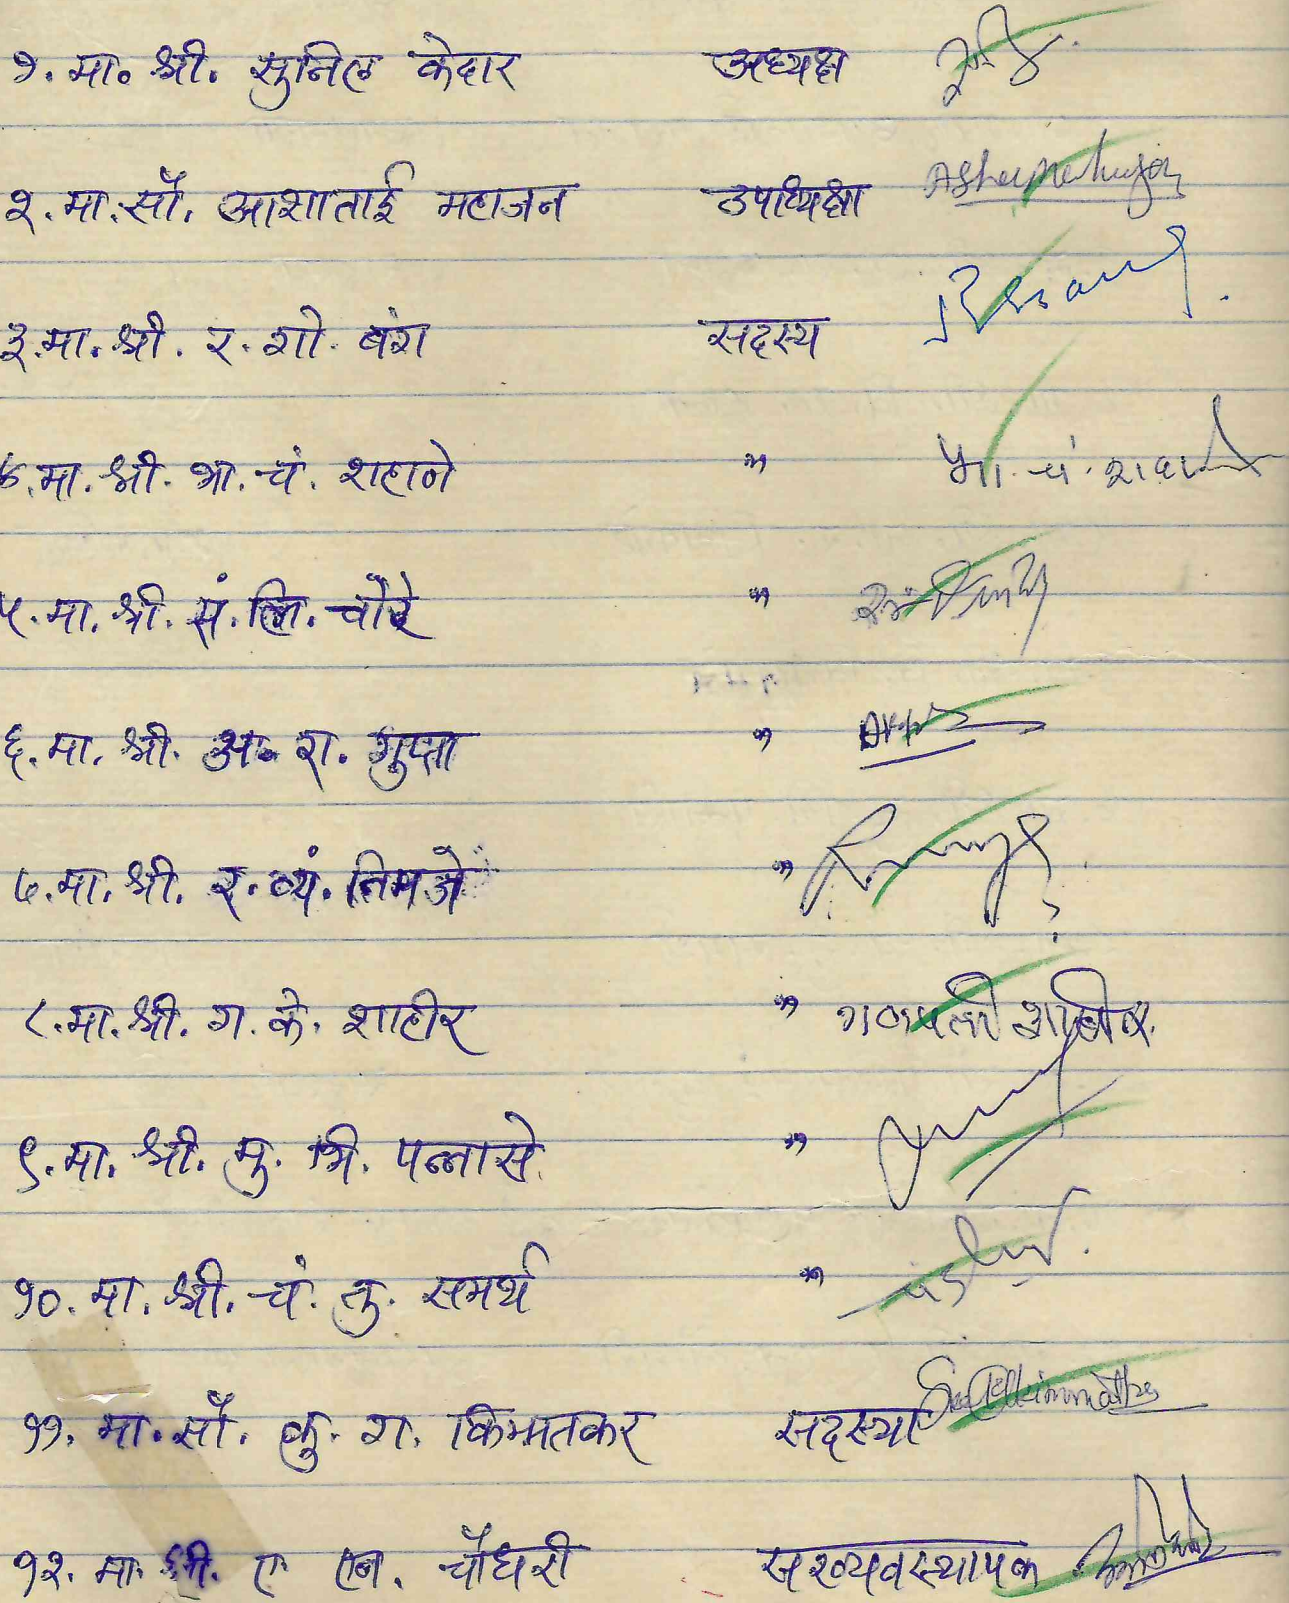 १. मा. श्री. सुनिल केदार अध्यक्ष
२. मा. सौ. आशाताई महाजन उपाध्यक्षा
३. मा. श्री. र. गो. बंग सदस्य
४. मा. श्री. भा. चं. शहाने " भा. चं. शहाने
५. मा. श्री. सं. लि. चौरे "
६. मा. श्री. अ. रा. गुप्ता "
७. मा. श्री. र. व्यं. निमजे "
८. मा. श्री. ग. के. शाहीर " गणपती शाहीर
९. मा. श्री. मु. भि. पन्नासे "
१०. मा. श्री. चं. तु. समर्थ "
११. मा. सौ. कु. ग. किम्मतकर सदस्या
१२. मा. श्री. ए. एन. चौधरी सरव्यवस्थापक